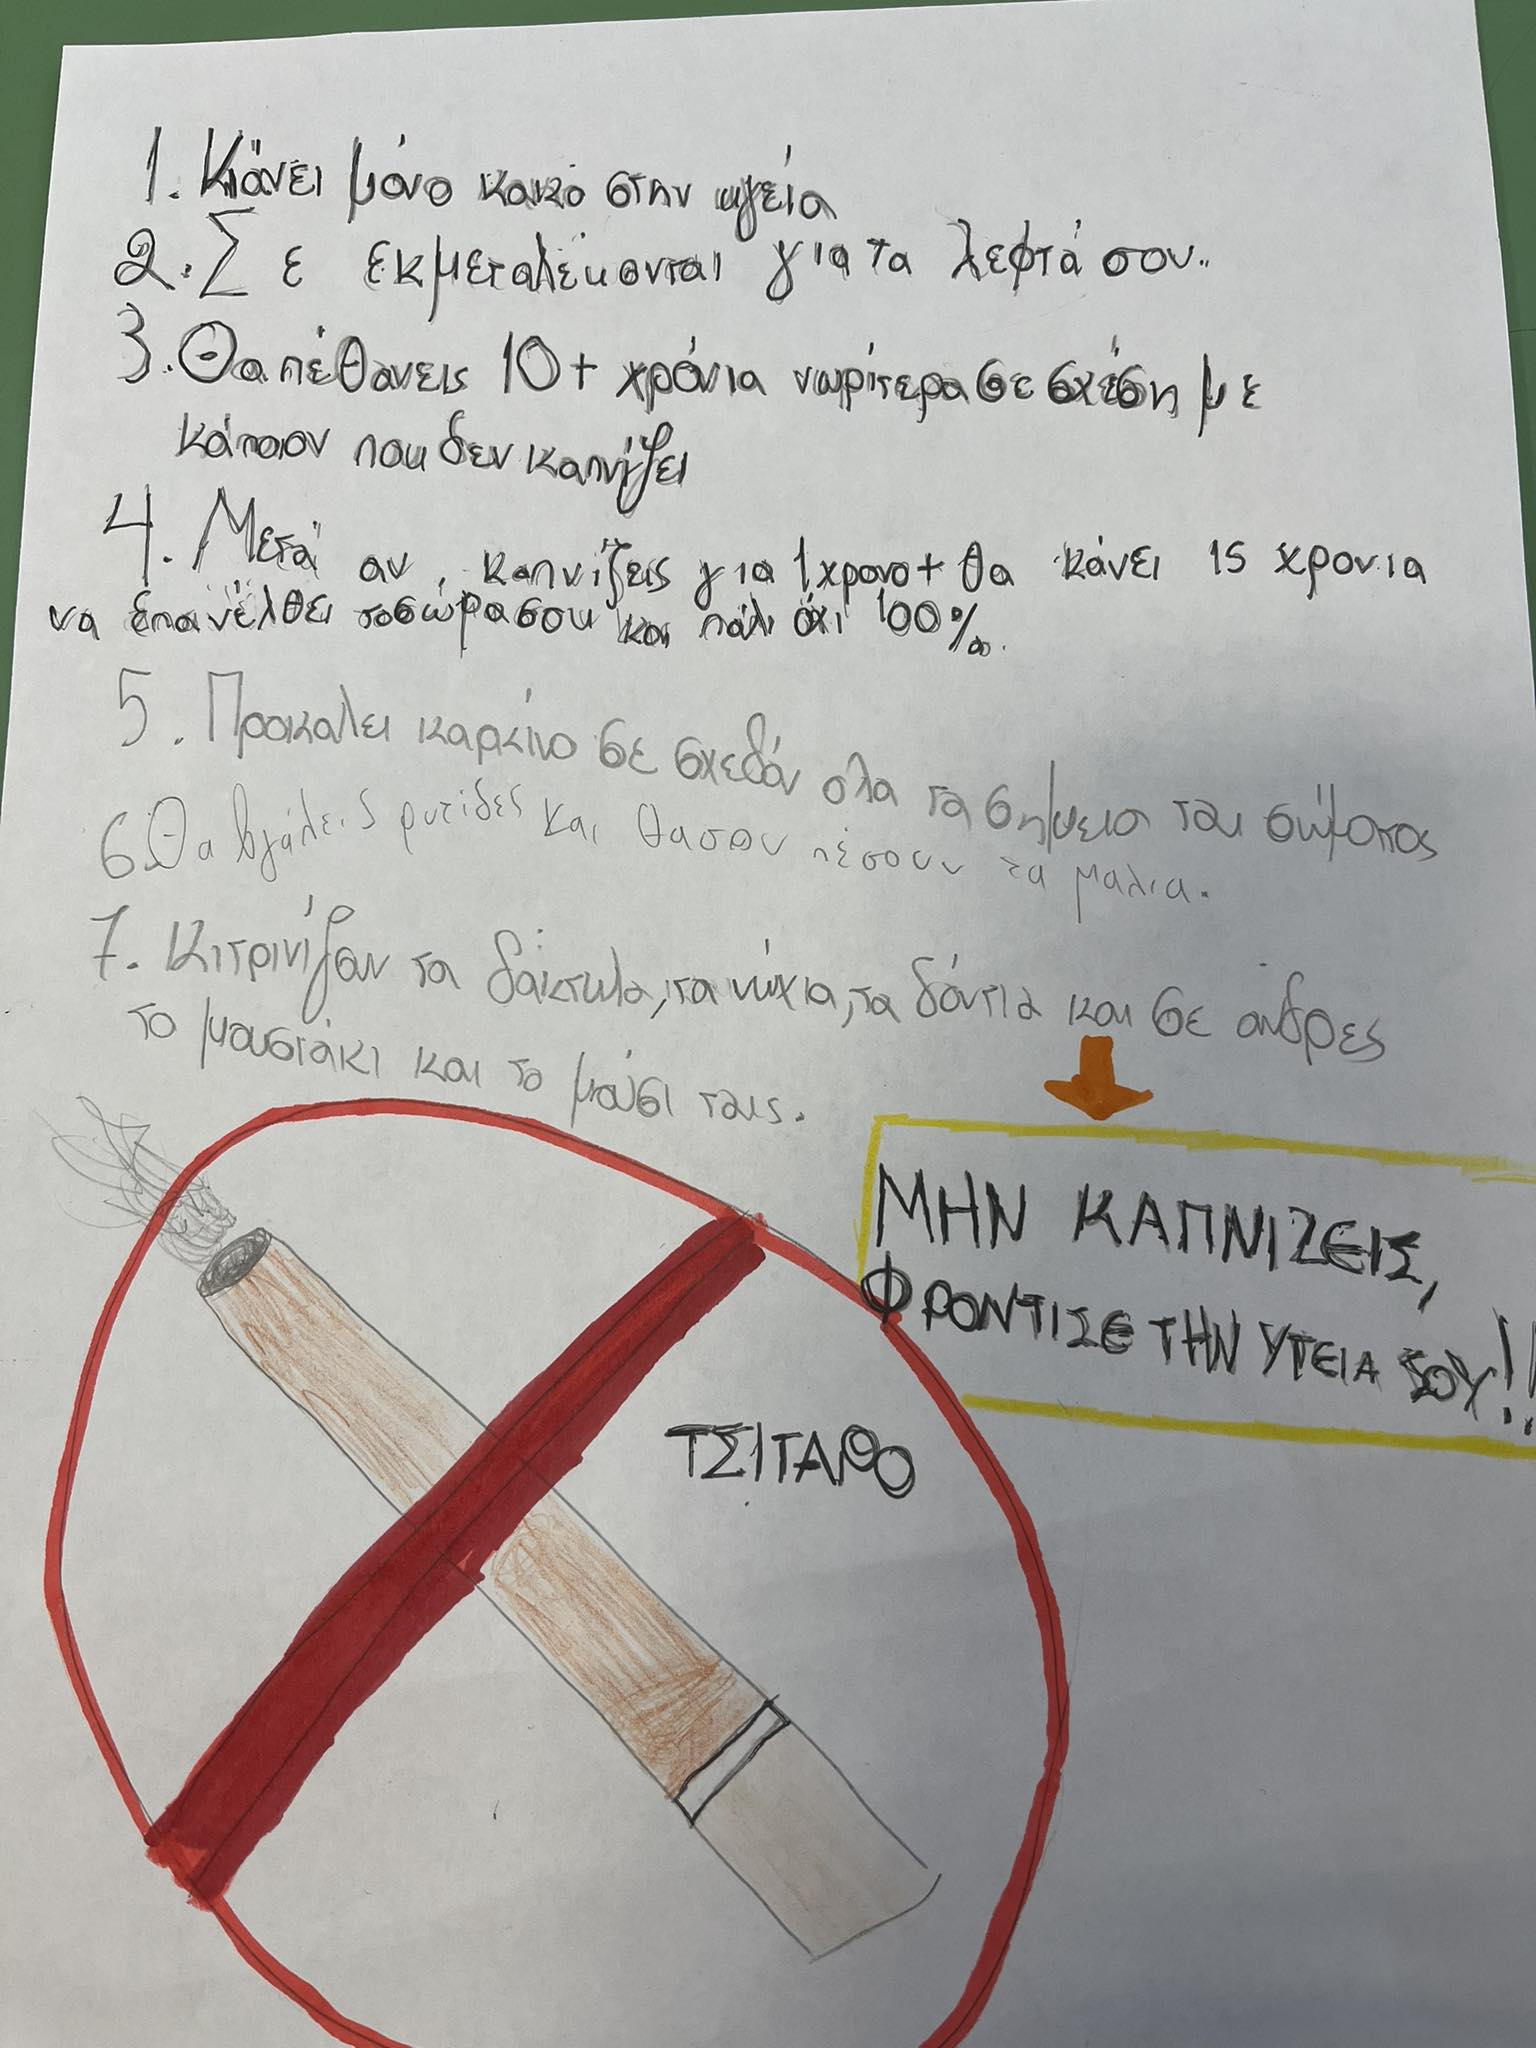 1. Κάνει μόνο κακό στην υγεία
2. Σε εκμεταλέυονται για τα λεφτά σου..
3. Θα πέθανεις 10+ χρόνια νωρίτερα σε σχέση με
κάποιον που δεν καπνίζει
4. Μετά αν, καπνίζεις για 1 χρονο+ θα κάνει 15 χρονια
να επανέλθει το σώμα σου και πάλι όχι 100%.
5. Προκαλει καρκίνο σε σχεδόν ολα τα σημεια του σώματος
6. Θα βγάλεις ρυτίδες και θα σου πέσουν τα μαλια.
7. Κιτρινίζουν τα δάκτυλα, τα νύχια, τα δόντια και σε άνδρες
το μουστάκι και το μούσι τους.
ΜΗΝ ΚΑΠΝΙΖΕΙΣ,
ΦΡΟΝΤΙΣΕ ΤΗΝ ΥΓΕΙΑ ΣΟΥ!!
ΤΣΙΓΑΡΟ